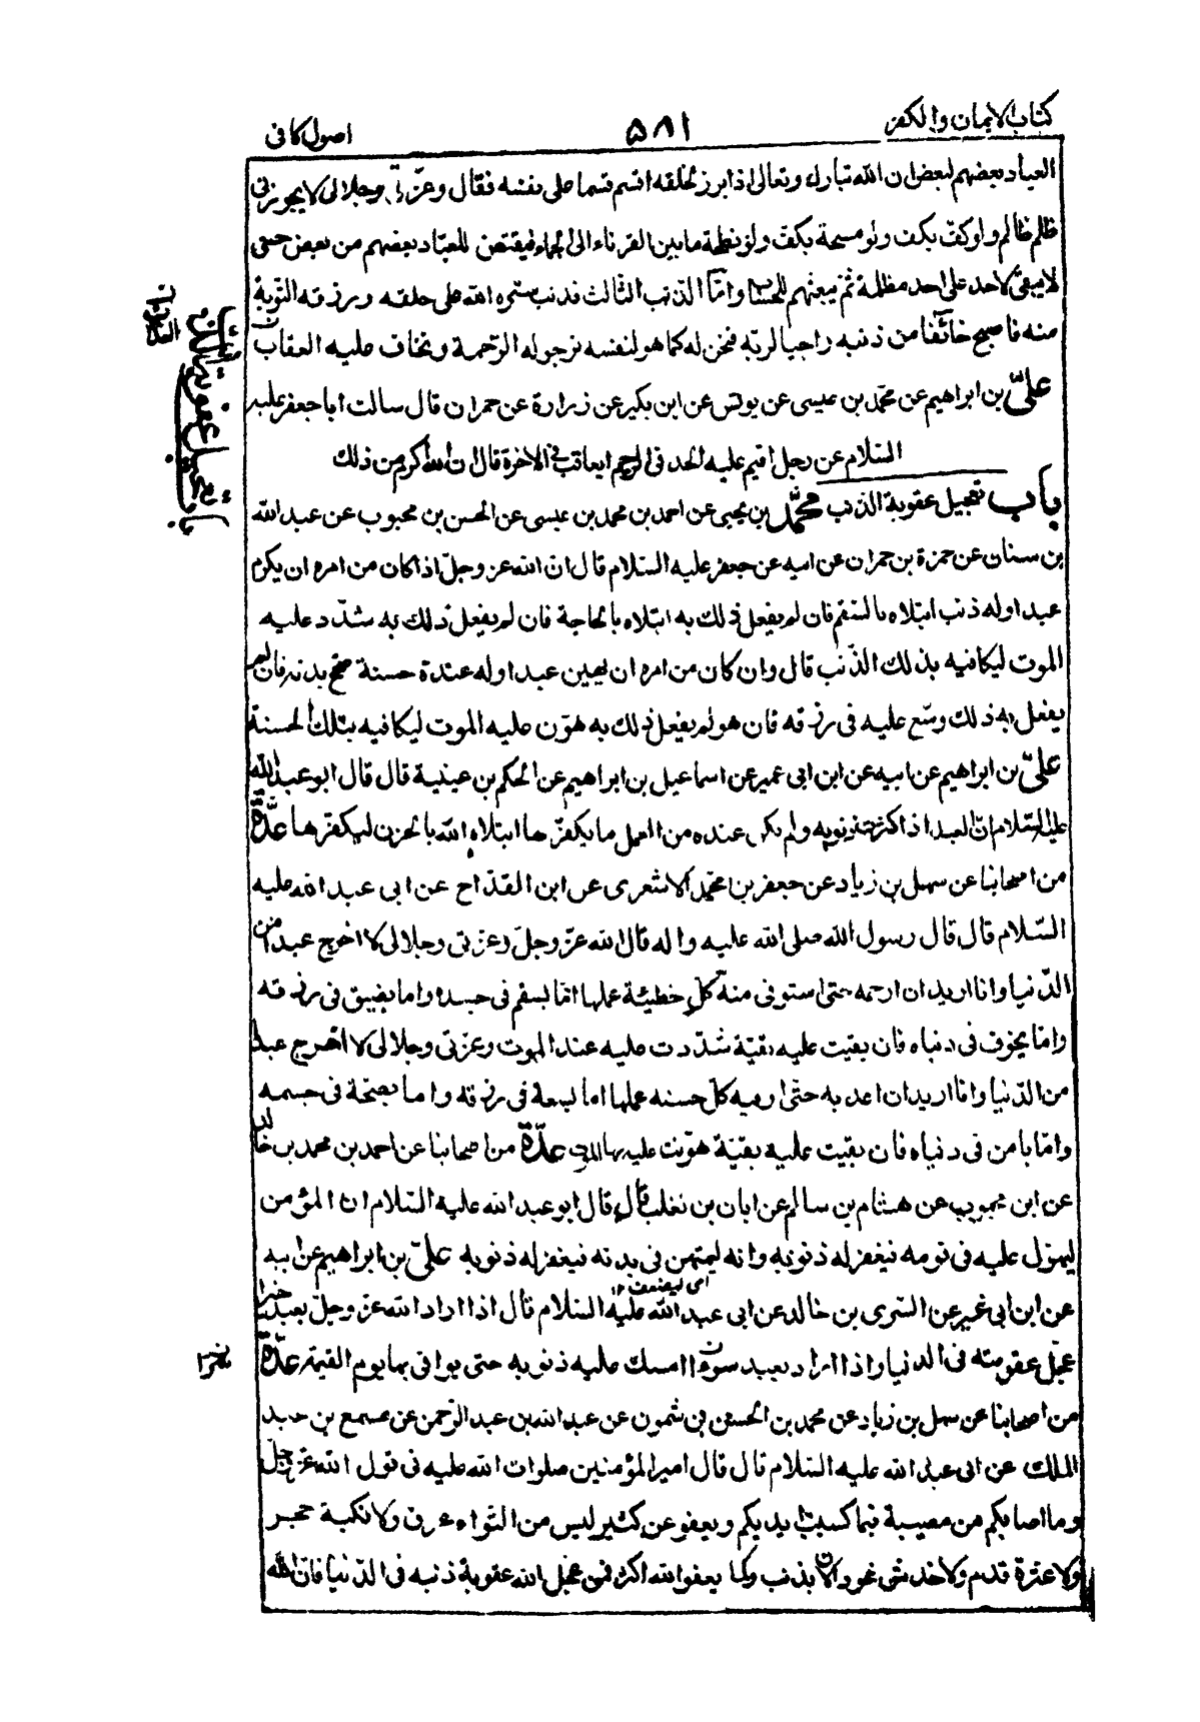 كتاب الايمان والكفر
٥٨١
اصول كافى
العباد بعضهم لبعض ان الله تبارك وتعالى اذا برز لخلقه اقسم قسما على نفسه فقال وعزّتى وجلالى لا يجوزنى
ظلم ظالم ولو كفّ بكف ولو مسحة بكفّ ولو نطحة ما بين القرناء الى الجماء فيقتص للعباد بعضهم من بعض حتى
لا يبقى لاحد على احد مظلمة ثم يبعثهم للحساب وامّا الذنب الثالث فذنب ستره الله على خلقه ورزقه التوبة
منه فاصبح خائفا من ذنبه راجيا لربّه فنحن له كما هو لنفسه نرجو له الرّحمة ونخاف عليه العقاب
علىّ بن ابراهيم عن محمّد بن عيسى عن يونس عن ابن بكير عن زرارة عن حمران قال سالت ابا جعفر عليه
السّلام عن رجل اقيم عليه الحد فى الرجم ايعاقب فى الآخرة قال ان الله اكرم من ذلك
باب تعجيل عقوبة الذنب محمّد بن يحيى عن احمد بن محمد بن عيسى عن الحسن بن محبوب عن عبد الله
بن سنان عن حمزة بن حمران عن ابيه عن جعفر عليه السّلام قال انّ الله عز وجلّ اذا كان من امره ان يكرم
عبدا وله ذنب ابتلاه بالسقم فان لم يفعل ذلك به ابتلاه بالحاجة فان لم يفعل ذلك به شدّد عليه
الموت ليكافيه بذلك الذّنب قال وان كان من امره ان يهين عبدا وله عنده حسنة صحّح بدنه فان لم
يفعل به ذلك وسّع عليه فى رزقه فان هو لم يفعل ذلك به هوّن عليه الموت ليكافيه بتلك الحسنة
علىّ بن ابراهيم عن ابيه عن ابن ابى عمير عن اسماعيل بن ابراهيم عن الحكم بن عيينة قال قال ابو عبد الله
عليه السّلام انّ العبد اذا كثرت ذنوبه ولم يكن عنده من العمل ما يكفّرها ابتلاه الله بالحزن ليكفّرها عدّة
من اصحابنا عن سهل بن زياد عن جعفر بن محمّد الاشعرى عن ابن القدّاح عن ابى عبد الله عليه
السّلام قال قال رسول الله صلى الله عليه واله قال الله عزّ وجلّ وعزتى وجلالى لا اخرج عبدا من
الدّنيا وانا اريد ان ارحمه حتى استوفى منه كلّ خطيئة عملها امّا بسقم فى جسده واما بضيق فى رزقه
وامّا بخوف فى دنياه فان بقيت عليه بقيّة شدّدت عليه عند الموت وعزتى وجلالى لا اخرج عبدا
من الدّنيا وانا اريد ان اعذبه حتّى اوفيه كلّ حسنه عملها اما بسعة فى رزقه واما بصحّة فى جسمه
وامّا بامن فى دنياه فان بقيت عليه بقيّة هوّنت عليه بها الموت عدّة من اصحابنا عن احمد بن محمد بن خالد
عن ابن محبوب عن هشام بن سالم عن ابان بن تغلب قال قال ابو عبد الله عليه السّلام ان المؤمن
ليهوّل عليه فى نومه فيغفر له ذنوبه وانه ليمتهن فى بدنه فيغفر له ذنوبه علىّ بن ابراهيم عن ابيه
عن ابن ابى عمير عن السّرى بن خالد عن ابى عبد الله عليه السّلام قال اذا اراد الله عزّ وجلّ بعبد خيرا
عجّل عقوبته فى الدنيا واذا اراد بعبد سوءا امسك عليه ذنوبه حتى يوافى بها يوم القيمة عدّة
من اصحابنا عن سهل بن زياد عن محمد بن الحسن بن شمون عن عبد الله بن عبد الرّحمن عن مسمع بن عبد
الملك عن ابى عبد الله عليه السّلام قال قال امير المؤمنين صلوات الله عليه فى قول الله عز وجلّ
وما اصابكم من مصيبة فبما كسبت ايديكم ويعفو عن كثير ليس من التواء عرق ولا نكبة حجر
ولا عثرة قدم ولا خدش عود الّا بذنب ولما يعفو الله اكثر فمن عجّل الله عقوبة ذنبه فى الدّنيا فانّ الله